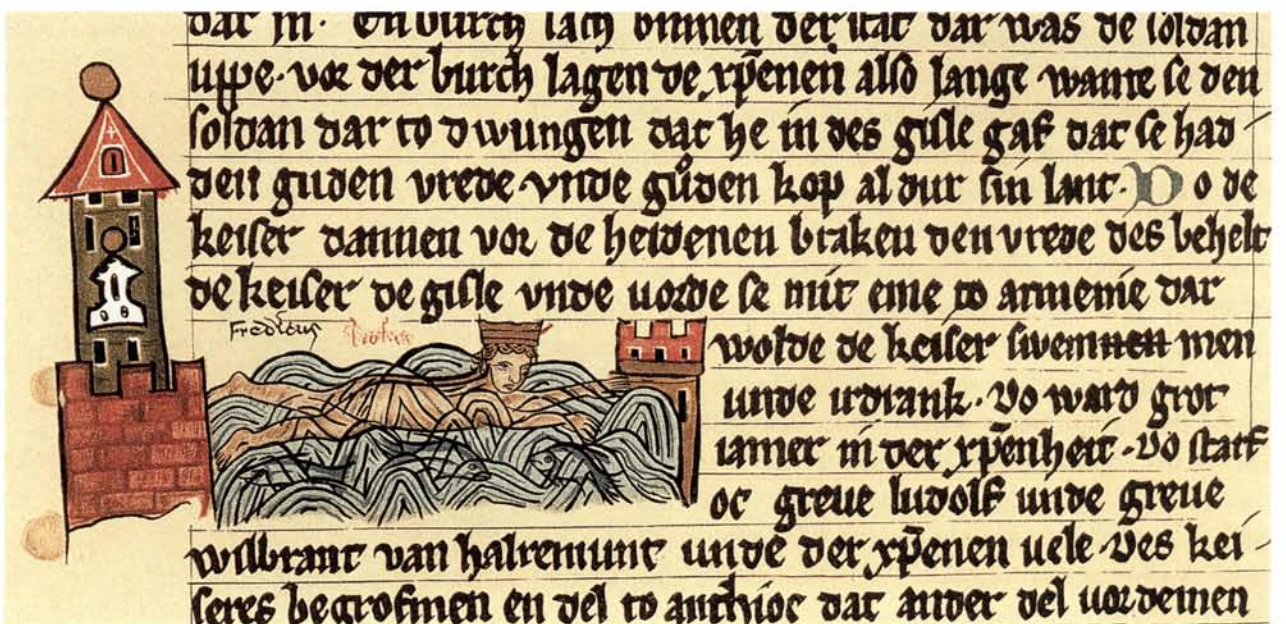 dar in. En burch lach binnen der stat dar was de soldan
uppe. vor der burch lagen de xp̄enen also lange wante se den
soldan dar to dwungen dat he in des gisle gaf dat se had
den guden vrede vnde gůden kop al dur sin lant. Do de
keiser dannen vor de heidenen braken den vrede des behelt
de keiser de gisle vnde uorde se mit eme to armenie dar
Fredicus
wolde de keiser swemnen men
unde irdrank. Do ward grot
iamer in der xp̄enheit. Do starf
oc greue ludolf unde greue
wilbrant van halremunt unde der xp̄enen uele. Des kei
seres begrofmen en del to anthioc dat ander del uordemen